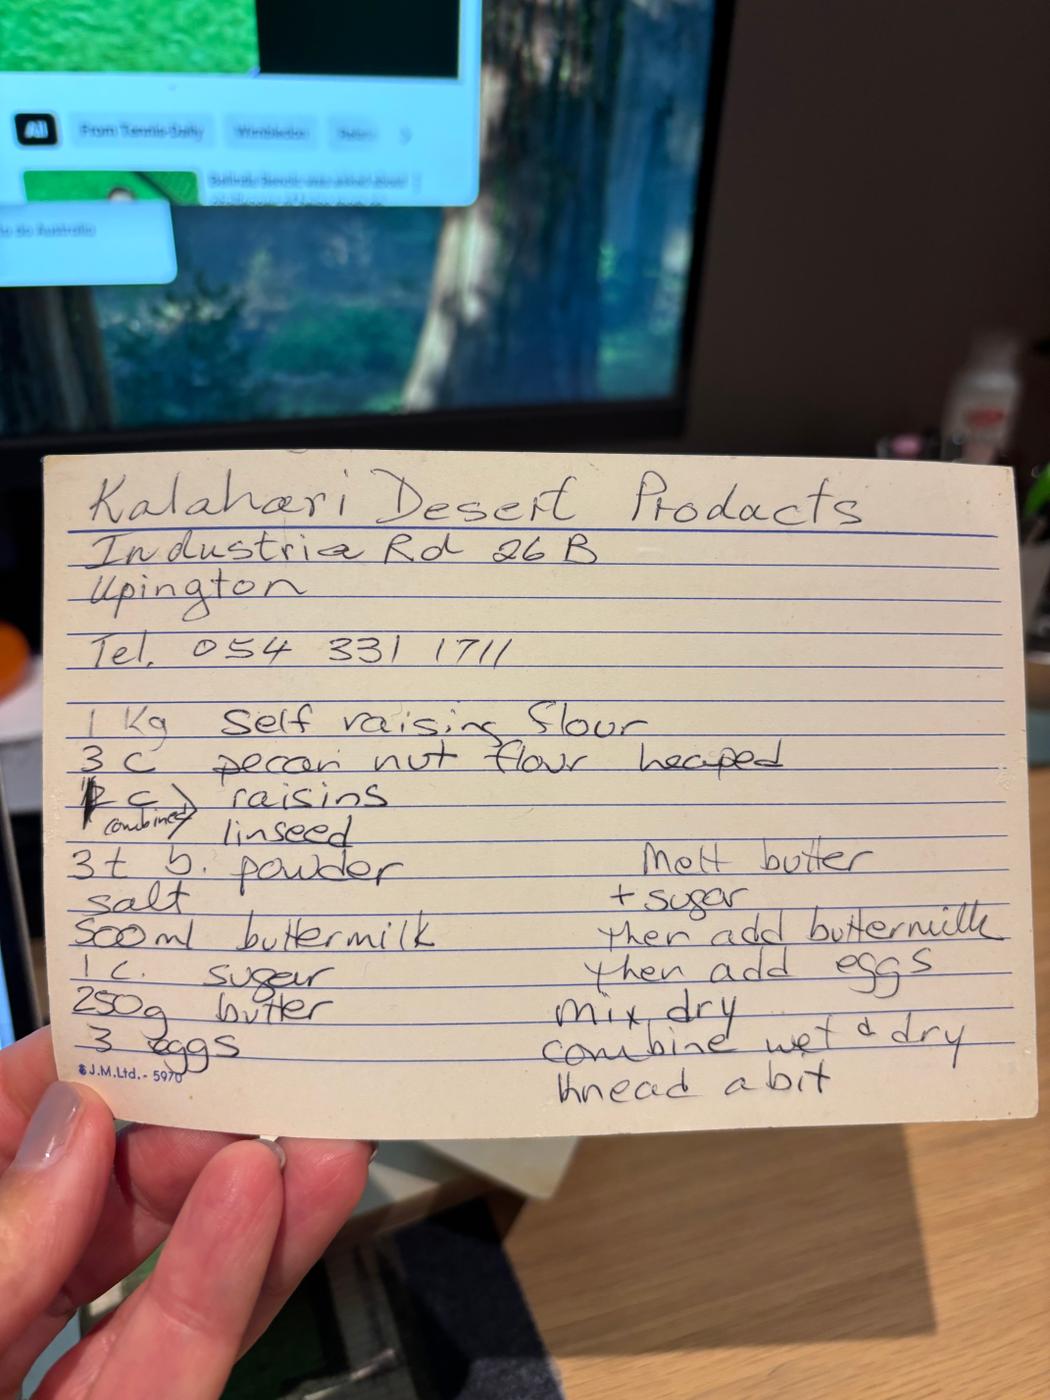 All From Tennis Daily Wimbledon
to do Australia
Kalahari Desert Products
Industria Rd 26 B
Upington
Tel. 054 331 1711
1 Kg self raising flour
3 c pecan nut flour heaped
c } raisins
combined linseed
3t b. powder
salt
500ml buttermilk
1 c. sugar
250g butter
3 eggs
Melt butter
+ sugar
then add buttermilk
then add eggs
mix dry
combine wet & dry
knead a bit
J.M.Ltd. - 5970